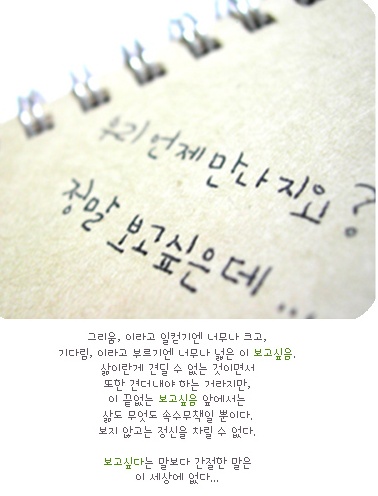 우리 언제 만나지요?
정말 보고싶은데...
그리움, 이라고 일컫기엔 너무나 크고,
기다림, 이라고 부르기엔 너무나 넓은 이 보고싶음.
삶이란게 견딜 수 없는 것이면서
또한 견뎌내야 하는 거라지만,
이 끝없는 보고싶음 앞에서는
삶도 무엇도 속수무책일 뿐이다.
보지 않고는 정신을 차릴 수 없다.
보고싶다는 말보다 간절한 말은
이 세상에 없다...